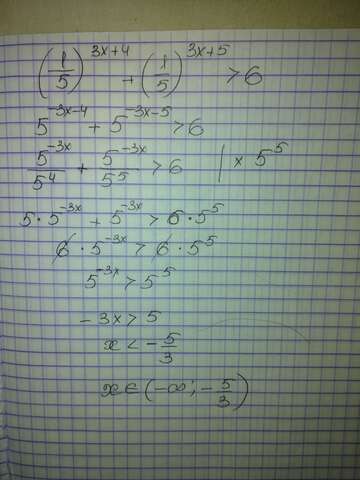 (1/5)^(3x+4) + (1/5)^(3x+5) > 6
5^(-3x-4) + 5^(-3x-5) > 6
5^(-3x)/5^4 + 5^(-3x)/5^5 > 6 | × 5^5
5 · 5^(-3x) + 5^(-3x) > 6 · 5^5
6 · 5^(-3x) > 6 · 5^5
5^(-3x) > 5^5
-3x > 5
x < -5/3
x ∈ (-∞; -5/3)